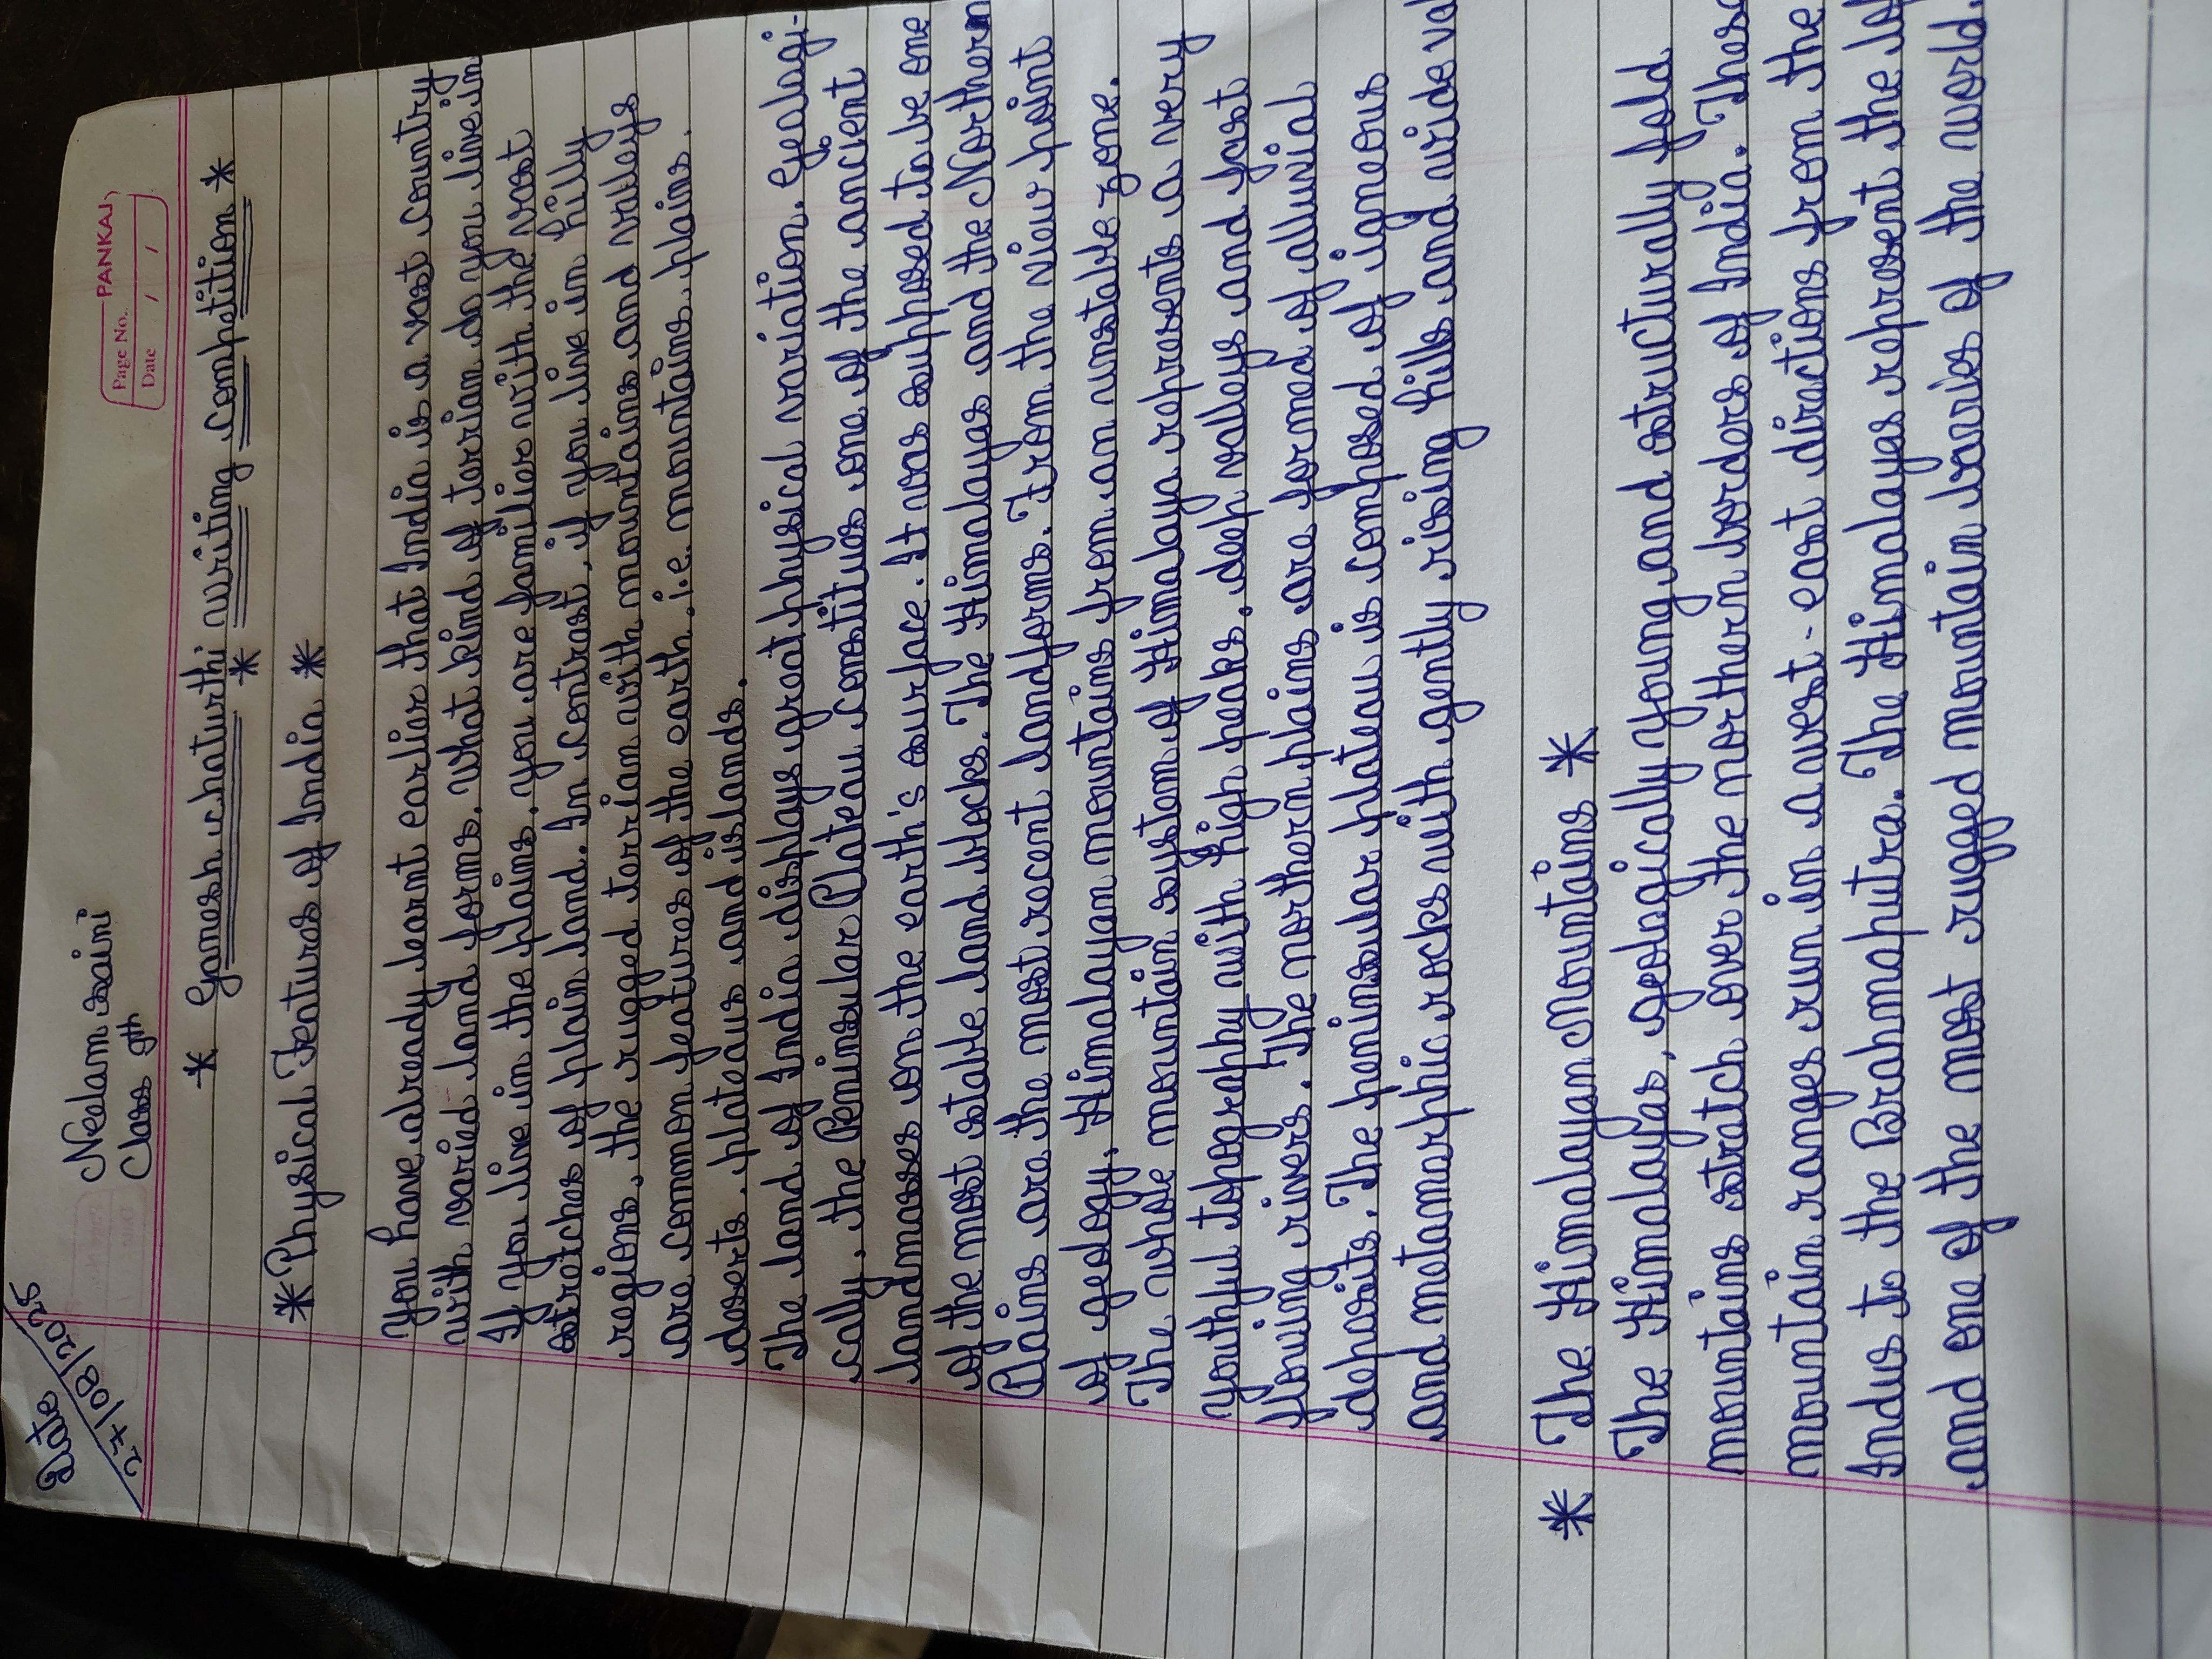 Date
27/08/2025
Neelam saini
Class 9th
Page No. PANKAJ
Date / /
* Ganesh chaturthi writing competition *
*
* Physical Features of India *
You have already learnt earlier that India is a vast country
with varied land forms. What kind of terrian do you live in
If you live in the plains, you are familier with the vast
stretches of plain land. In contrast, if you live in hilly
regions, the rugged terrian with mountains and valleys
are common features of the earth, i.e. mountains, plains,
deserts, plateaus and islands.
The land of India displays great physical variation. Gealagi-
cally, the Peninsular Plateau constitues one of the ancient
landmasses on the earth's surface. It was supposed to be one
of the most stable land blocks. The Himalayas and the Northern
Plains are the most recent landforms. From the view point
of geology, Himalayan mountains from an unstable zone.
The whole mountain system of Himalaya represents a very
youthful topography with high peaks, deep valleys and fast
flowing rivers. The northern plains are formed of alluvial
deposits. The peninsular plateau is composed of igneous
and metamorphic rocks with gently rising hills and wide
* The Himalayan Mountains *
The Himalayas, geologically young and structurally fold
mountains stretch over the northern borders of India.
mountain ranges run in a west-east directions from the
Indus to the Brahmaputra. The Himalayas represent the
and one of the most rugged mountain barries of the world.